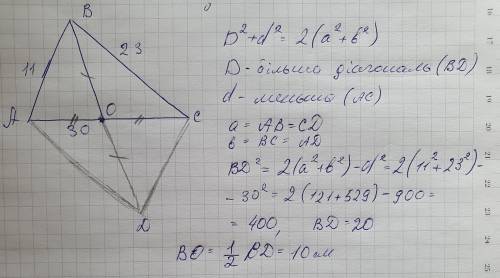 B
11
23
A
O
C
30
D
D² + d² = 2(a² + b²)
D - більша діагональ (BD)
d - менша (AC)
a = AB = CD
b = BC = AD
BD² = 2(a² + b²) - d² = 2(11² + 23²) -
- 30² = 2(121 + 529) - 900 =
= 400, BD = 20
BO = 1/2 BD = 10 см
16
17
18
19
20
21
22
23
24
25